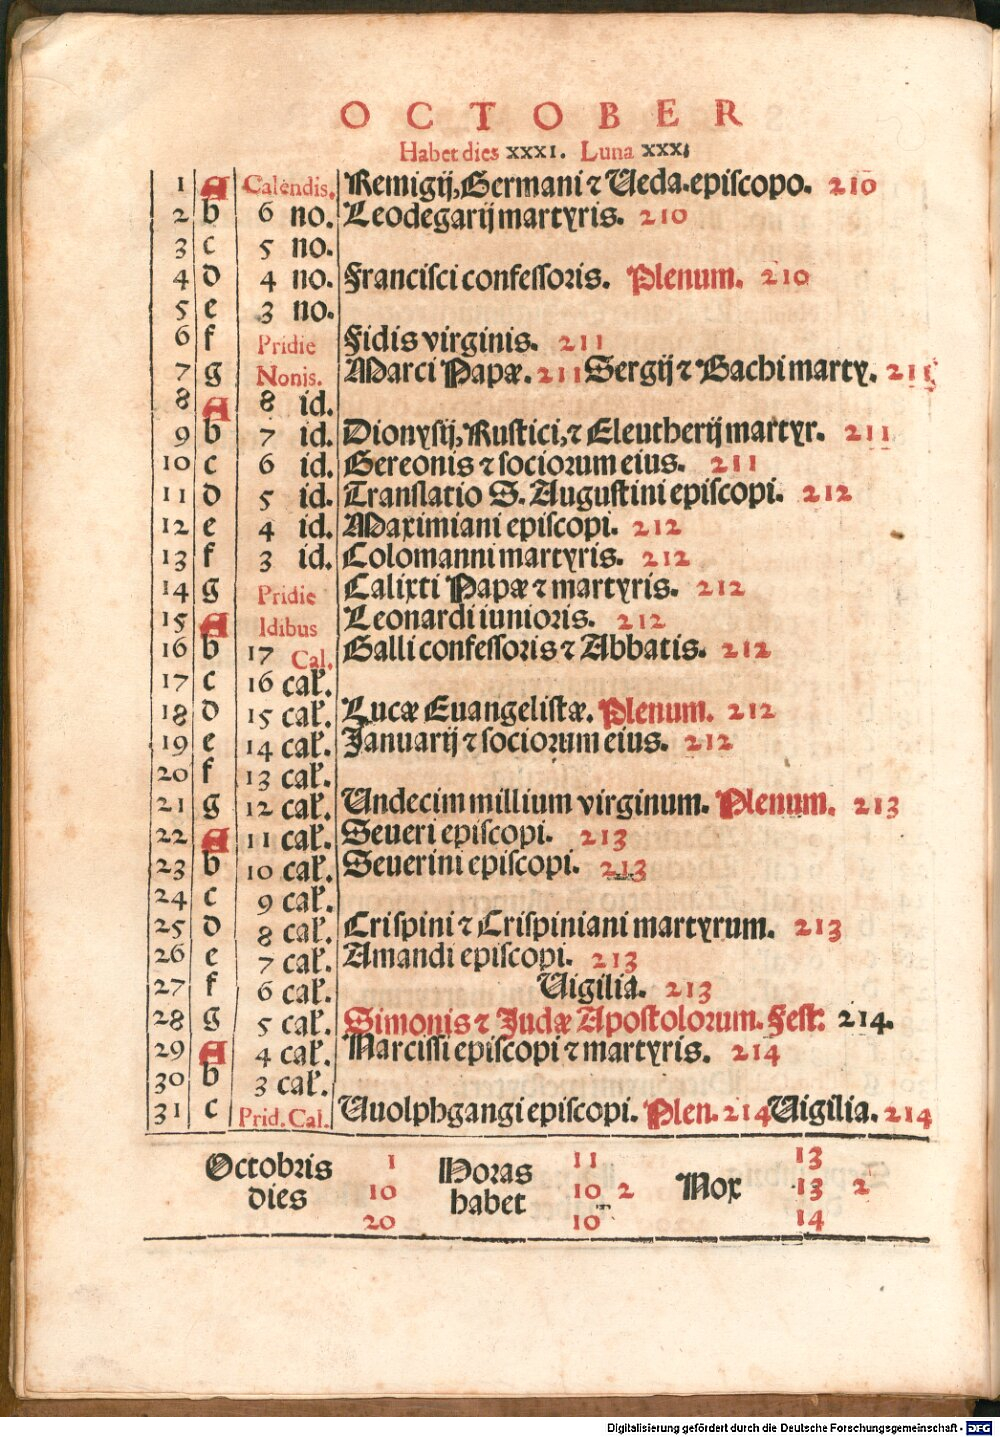 OCTOBER
Habet dies XXXI. Luna XXX;
1 A Calendis. Remigij, Germani ⁊ Ueda. episcopo. 210
2 b 6 no. Leodegarij martyris. 210
3 c 5 no.
4 d 4 no. Francisci confessoris. Plenum. 210
5 e 3 no.
6 f Pridie Fidis virginis. 211
7 g Nonis. Marci Papæ. 211 Sergij ⁊ Bachi marty. 211
8 A 8 id.
9 b 7 id. Dionysij, Rustici, ⁊ Eleutherij martyr. 211
10 c 6 id. Gereonis ⁊ sociorum eius. 211
11 d 5 id. Translatio S. Augustini episcopi. 212
12 e 4 id. Maximiani episcopi. 212
13 f 3 id. Colomanni martyris. 212
14 g Pridie Calixti Papæ ⁊ martyris. 212
15 A Idibus Leonardi iunioris. 212
16 b 17 Cal. Galli confessoris ⁊ Abbatis. 212
17 c 16 cal.
18 d 15 cal. Lucæ Euangelistæ. Plenum. 212
19 e 14 cal. Januarij ⁊ sociorum eius. 212
20 f 13 cal.
21 g 12 cal. Undecim millium virginum. Plenum. 213
22 A 11 cal. Seueri episcopi. 213
23 b 10 cal. Seuerini episcopi. 213
24 c 9 cal.
25 d 8 cal. Crispini ⁊ Crispiniani martyrum. 213
26 e 7 cal. Amandi episcopi. 213
27 f 6 cal. Uigilia. 213
28 g 5 cal. Simonis ⁊ Judæ Apostolorum. Fest. 214.
29 A 4 cal. Narcissi episcopi ⁊ martyris. 214
30 b 3 cal.
31 c Prid. Cal. Uuolphgangi episcopi. Plen. 214 Uigilia. 214
Octobris dies 1 10 20 Horas habet 11 10 2 10 Nox 13 13 2 14
Digitalisierung gefördert durch die Deutsche Forschungsgemeinschaft - DFG